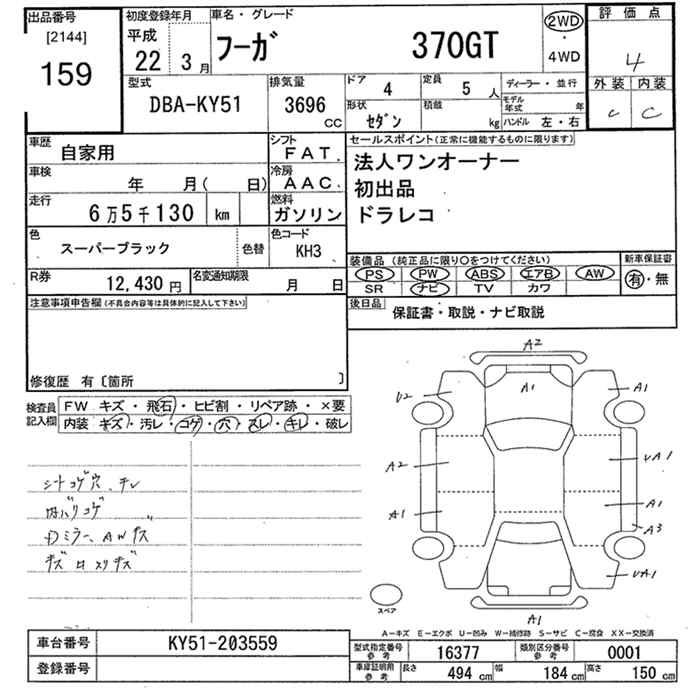 出品番号
[2144]
159
初度登録年月
平成
22 3月
車名・グレード
フーガ 370GT
2WD
・
4WD
評価点
4
外装 内装
C C
型式
DBA-KY51
排気量
3696 CC
ドア 4
定員 5 人
形状 セダン
積載 kg
ディーラー・並行
モデル年式 年
ハンドル 左・右
車歴 自家用
シフト FAT.
車検 年 月( 日)
冷房 AAC.
走行 6万5千130 km
燃料 ガソリン
色 スーパーブラック 色替
色コード KH3
R券 12,430円
名変通知期限 月 日
セールスポイント(正常に機能するものに限ります)
法人ワンオーナー
初出品
ドラレコ
装備品(純正品に限り○をつけてください)
PS PW ABS エアB AW
SR ナビ TV カワ
新車保証書
有・無
後日品 保証書・取説・ナビ取説
注意事項申告欄(不具合内容等は具体的に記入して下さい)
修復歴 有〔箇所 〕
検査員記入欄
FW キズ・飛石・ヒビ割・リペア跡・×要
内装 キズ・汚レ・コゲ・穴・スレ・キレ・破レ
シートコゲ穴、チレ
内バリコゲ
Dミラー、AWキズ
A2
A1
U2
A1
A2
UA1
A1
A1
A3
UA1
A1
スペア
A-キズ E-エクボ U-凹み W-補修跡 S-サビ C-腐食 XX-交換済
車台番号 KY51-203559
登録番号
型式指定番号 参考 16377
類別区分番号 参考 0001
車庫証明用 参考 長さ 494 cm 幅 184 cm 高さ 150 cm